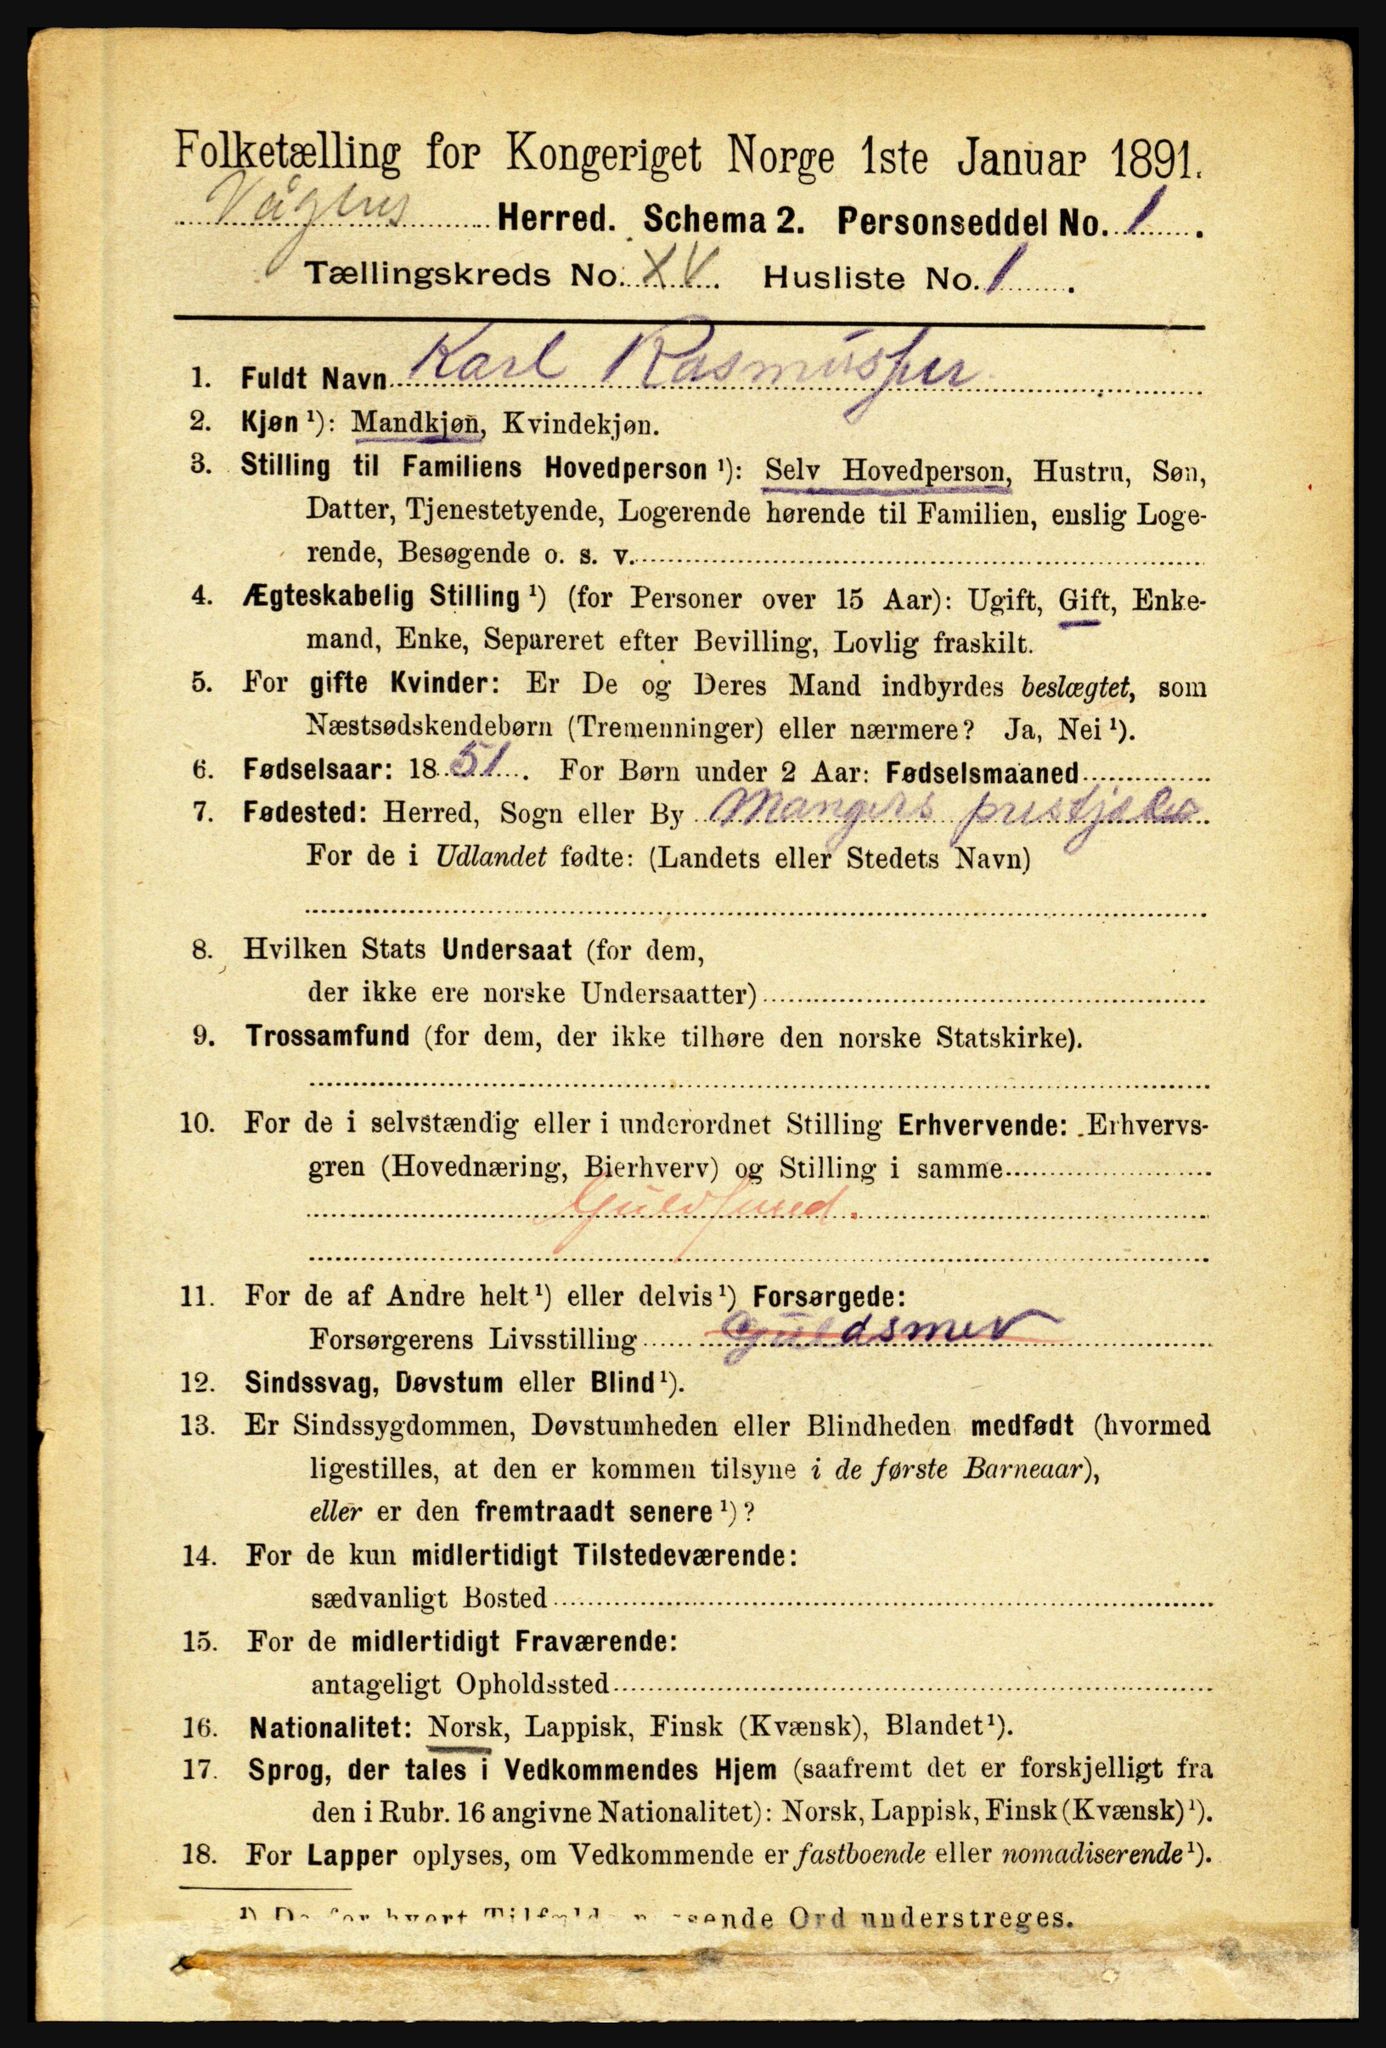 Folketælling for Kongeriget Norge 1ste Januar 1891.
Vågens Herred. Schema 2. Personseddel No. 1.
Tællingskreds No. XV. Husliste No. 1.
1. Fuldt Navn Karl Rasmussen
2. Kjøn ¹): Mandkjøn, Kvindekjøn.
3. Stilling til Familiens Hovedperson ¹): Selv Hovedperson, Hustru, Søn,
Datter, Tjenestetyende, Logerende hørende til Familien, enslig Loge-
rende, Besøgende o. s. v.
4. Ægteskabelig Stilling ¹) (for Personer over 15 Aar): Ugift, Gift, Enke-
mand, Enke, Separeret efter Bevilling, Lovlig fraskilt.
5. For gifte Kvinder: Er De og Deres Mand indbyrdes beslægtet, som
Næstsødskendebørn (Tremenninger) eller nærmere? Ja, Nei ¹).
6. Fødselsaar: 1851. For Børn under 2 Aar: Fødselsmaaned
7. Fødested: Herred, Sogn eller By Mangers
For de i Udlandet fødte: (Landets eller Stedets Navn)
8. Hvilken Stats Undersaat (for dem,
der ikke ere norske Undersaatter)
9. Trossamfund (for dem, der ikke tilhøre den norske Statskirke).
10. For de i selvstændig eller i underordnet Stilling Erhvervende: Erhvervs-
gren (Hovednæring, Bierhverv) og Stilling i samme
Guldsmed.
11. For de af Andre helt ¹) eller delvis ¹) Forsørgede:
Forsørgerens Livsstilling Guldsmev
12. Sindssvag, Døvstum eller Blind ¹).
13. Er Sindssygdommen, Døvstumheden eller Blindheden medfødt (hvormed
ligestilles, at den er kommen tilsyne i de første Barneaar),
eller er den fremtraadt senere ¹)?
14. For de kun midlertidigt Tilstedeværende:
sædvanligt Bosted
15. For de midlertidigt Fraværende:
antageligt Opholdssted
16. Nationalitet: Norsk, Lappisk, Finsk (Kvænsk), Blandet ¹).
17. Sprog, der tales i Vedkommendes Hjem (saafremt det er forskjelligt fra
den i Rubr. 16 angivne Nationalitet): Norsk, Lappisk, Finsk (Kvænsk) ¹).
18. For Lapper oplyses, om Vedkommende er fastboende eller nomadiserende ¹).
¹) De for hvert Tilfælde passende Ord understreges.